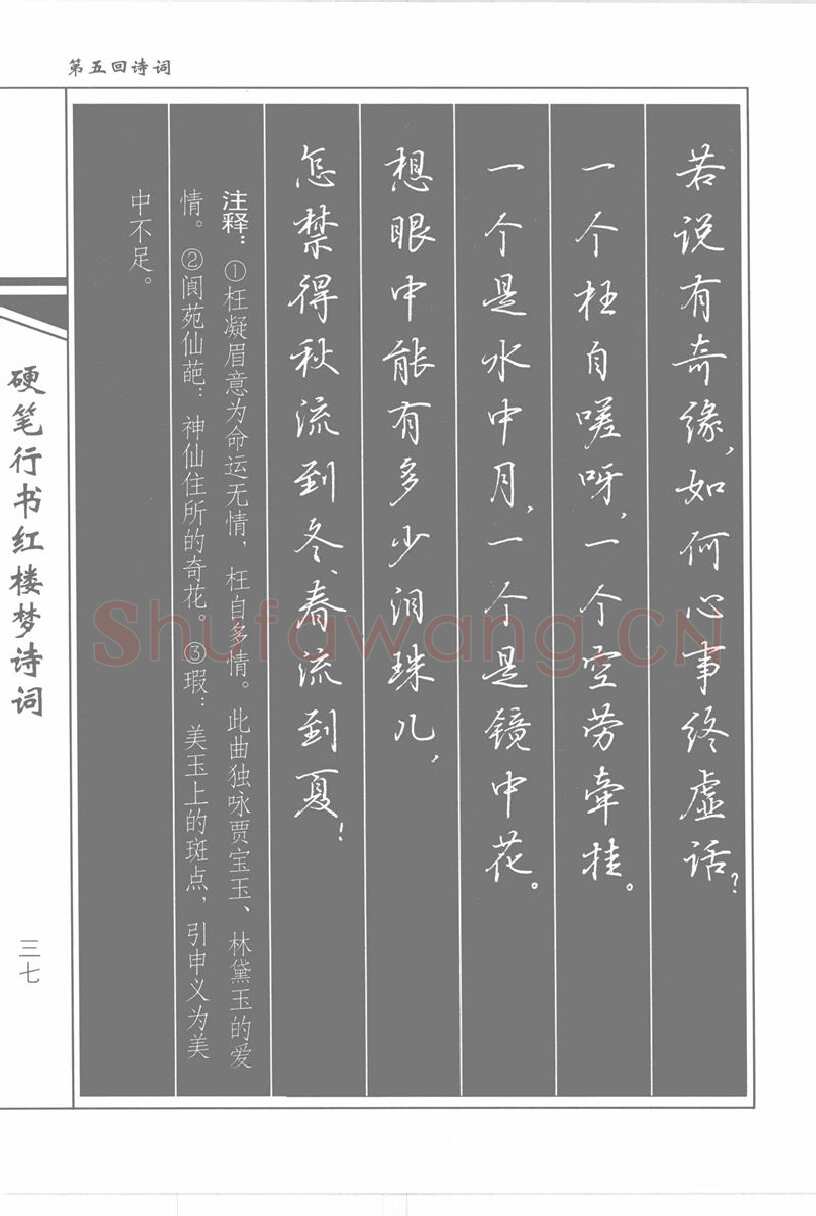 第五回诗词
若说有奇缘,如何心事终虚话?
一个枉自嗟呀,一个空劳牵挂。
一个是水中月,一个是镜中花。
想眼中能有多少泪珠儿,
怎禁得秋流到冬、春流到夏!
注释：①枉凝眉意为命运无情，枉自多情。此曲独咏贾宝玉、林黛玉的爱
情。②阆苑仙葩：神仙住所的奇花。③瑕：美玉上的斑点，引申义为美
中不足。
硬笔行书红楼梦诗词
三七
Shufawang.CN